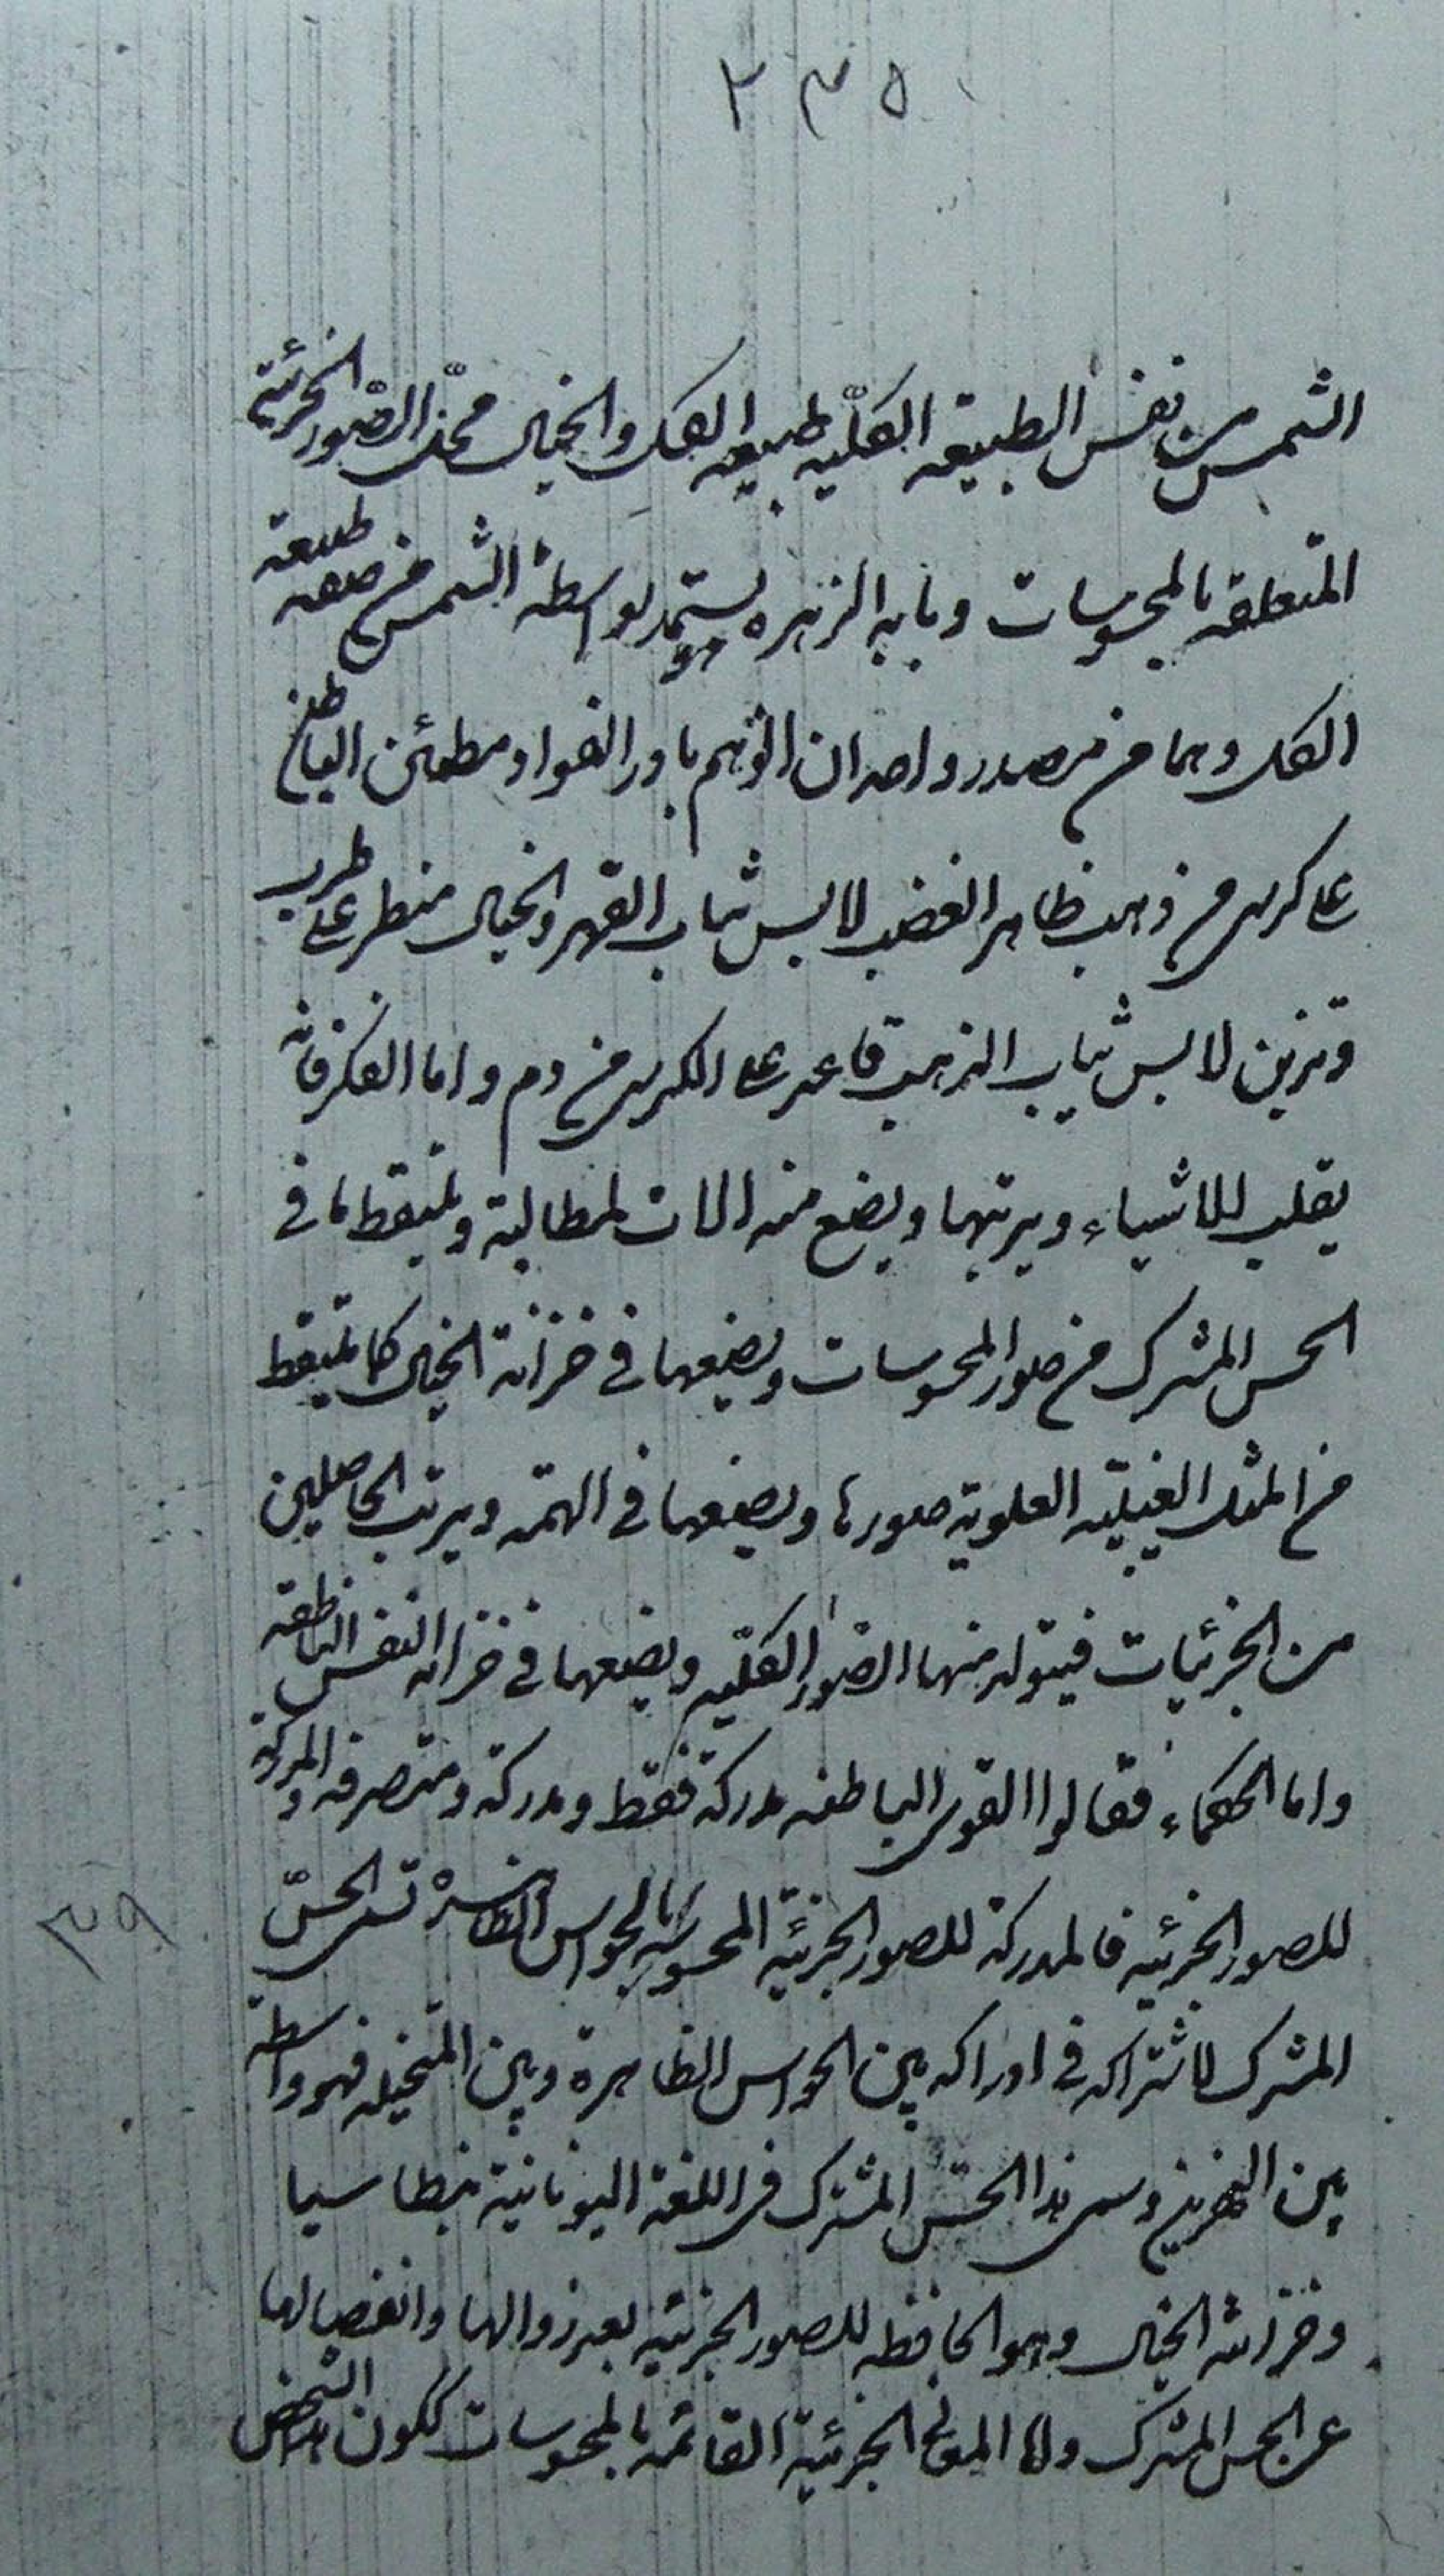 ٢٣٥
الشمس من نفس الطبيعة الكلّيه طبيعه الكل والخيال محلّ الصّور الجزئية
المتعلقه بالمحسوسات وبابه الزهره يستمد بواسطة الشمس من صفه طبيعة
الكل وهما من مصدر واحد ان الوهم بارد الفواد مطمئن الباطن
على كرسى من ذهب ظاهر الغضب لابس ثياب القهر والخيال منطو على طرب
وتزين لابس ثياب الذهب قاعد على الكرسى من دم واما الفكر فانه
يقلب للاشياء ويرتبها ويضع منه الات لمطالبة ويلتقط ما فى
الحس المشترك من صور المحسوسات ويضعها فى خزانة الخيال كما يلتقط
من المثل الغيبيّه العلوية صورها ويضعها فى الهمّه ويرتب الحاصلين
من الجزئيات فيتولد منها الصّور الكليّه ويضعها فى خزانه النفس الناطقة
واما الحكماء فقالوا القوى الباطنه مدركة فقط ومدركة ومتصرفه والمدركة
للصور الجزئيه فالمدركة للصور الجزئيّه المحسوسة بالحواس الظاهرة تسمى الحسّ
المشترك لاشتراكه فى ادراكه بين الحواس الظاهرة وبين المتخيله فهو واسطة
بين النهرين وسمى هذا الحسّ المشترك فى اللغة اليونانية بنطاسيا
وخزانته الخيال وهو الحافظه للصور الجزئيّه بعد زوالها وانفصالها
عن الحس المشترك واما المعانى الجزئية القائمة بالمحسوسات ككون هذا الشخص
٣٩